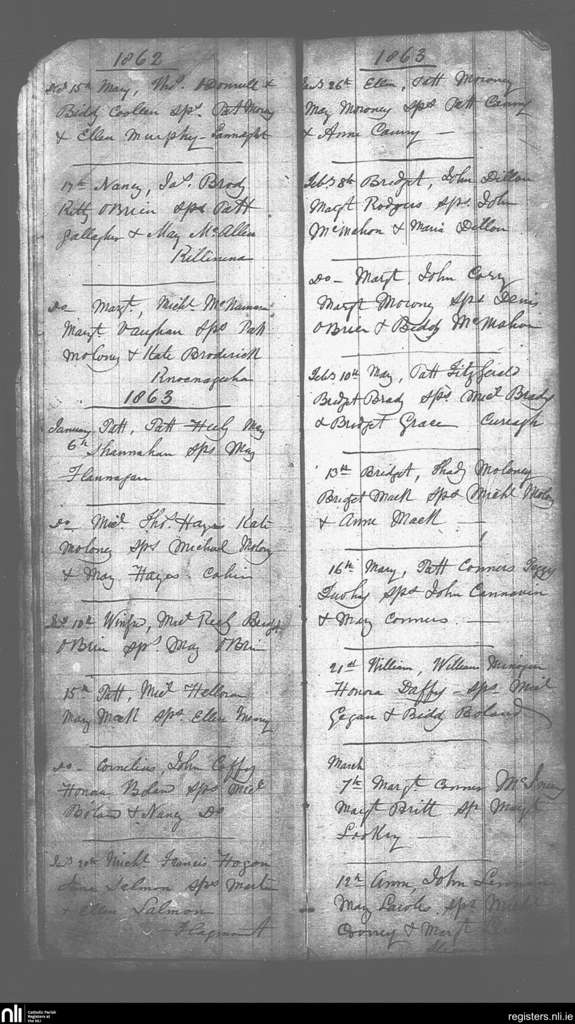 1862
Decr 15th Mary, Thos. O'Donnell &
Biddy Coollen sps. Pat Morey
& Ellen Murphy - Lannaght
17th Nancy, Jas. Brody
Kitty OBrien sps Patt
Gallagher & May McAllen
Killinena
Do - Margt, Michl McNamara
Margt Vaughan Sps Patt
Moloney & Kate Broderick
Knocnageeha
1863
January Patt, Patt Healy May
6th Shannahan Sps May
Flannagan
Do - Micl. Thos. Hayes Kate
Moloney Sps Michael Moloney
& May Hayes - Cahir
Jany 10th Winfr, Micl Reily Bridgt
OBrien sps May OBrien
15th Patt, Micl Helloran
Mary Mack Sps Ellen
Do - Cornelius, John Coffey
Honora Bolan Sps Micl
Boland & Nancy Do
Jany 20th Michl Francis Hogan
Salmon sps Martin
& Ellen Salmon
Flagmount
1863
Jany 26th Ellen, Patt Moroney
May Moroney Sps Patt Canny
& Anne Canny -
Feby 8th Bridget, John Dillon
Margt Rodgers Sps John
McMahon & Maria Dillon
Do - Margt John Cory
Margt Moroney Sps Denis
OBrien & Biddy McMahon
Feby 10th May, Patt Fitzgerald
Bridget Brady Sps Micl Brady
& Bridget Grace Curragh
13th Bridget, Thady Moloney
Bridget Mack Sps Michl Moloney
& Anne Mack -
16th Mary, Patt Connors Peggy
Tuohy Sps John Cannavin
& May Connors -
21st William, William Minogue
Honora Daffy - sps Micl
Gegan & Biddy Boland
March
7th Margt Connor McInerney
Margt Britt Sp Margt
Looney
12th Anne, John Lennan
May Lawlor Sps Michl
Cooney & Margt
nli Catholic Parish
Registers at
the NLI
registers.nli.ie